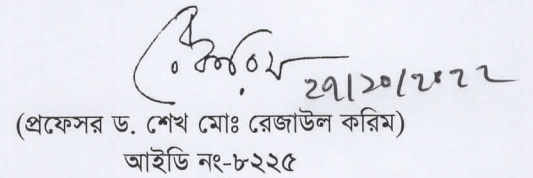 রে করিম ২৭/১০/২০২২
(প্রফেসর ড. শেখ মোঃ রেজাউল করিম)
আইডি নং-৮২২৫